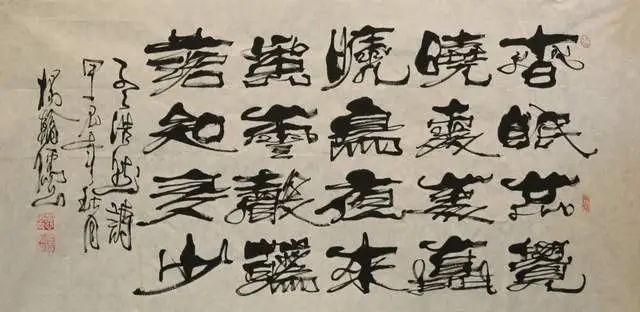 春眠不覺
曉處處聞
啼鳥夜來
風雨聲花
落知多少
孟浩然詩